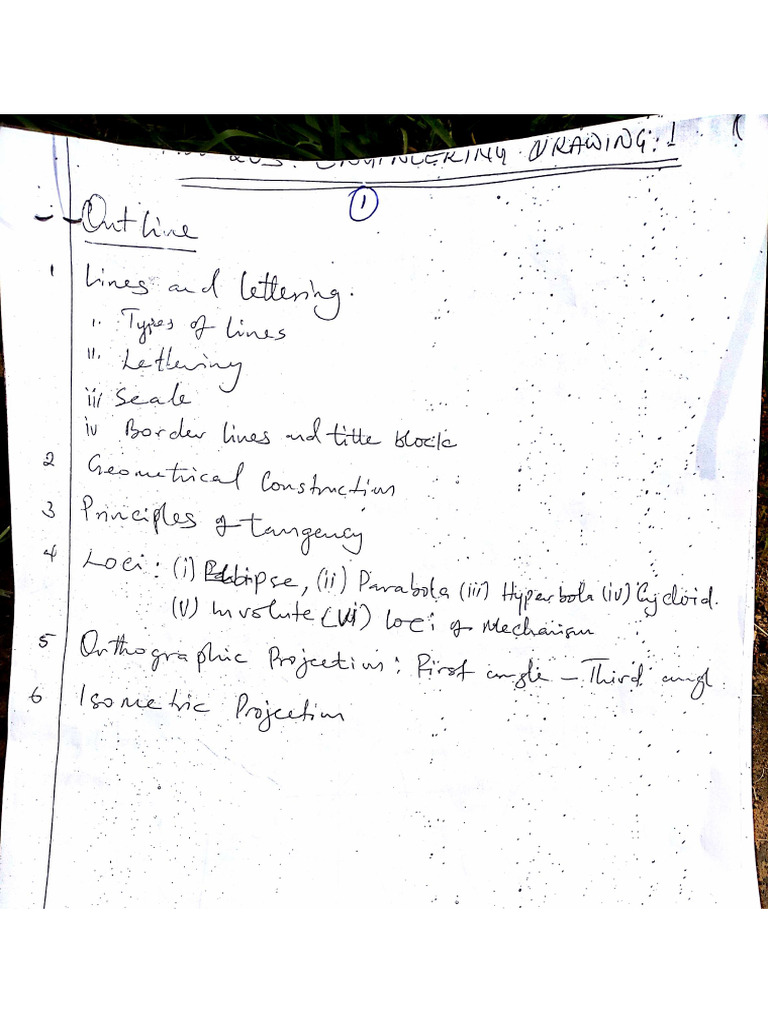 203: ENGINEERING DRAWING: 1
1
Outline
1 Lines and lettering.
i. Types of lines
ii. Lettering
iii Scale
iv Border lines and title block
2 Geometrical Construction
3 Principles of tangency
4 Loci: (i) Ellipse, (ii) Parabola (iii) Hyperbola (iv) Cycloid.
(V) Involute (vi) loci of Mechanism
5 Orthographic Projection: First angle – Third angl
6 Isometric Projection